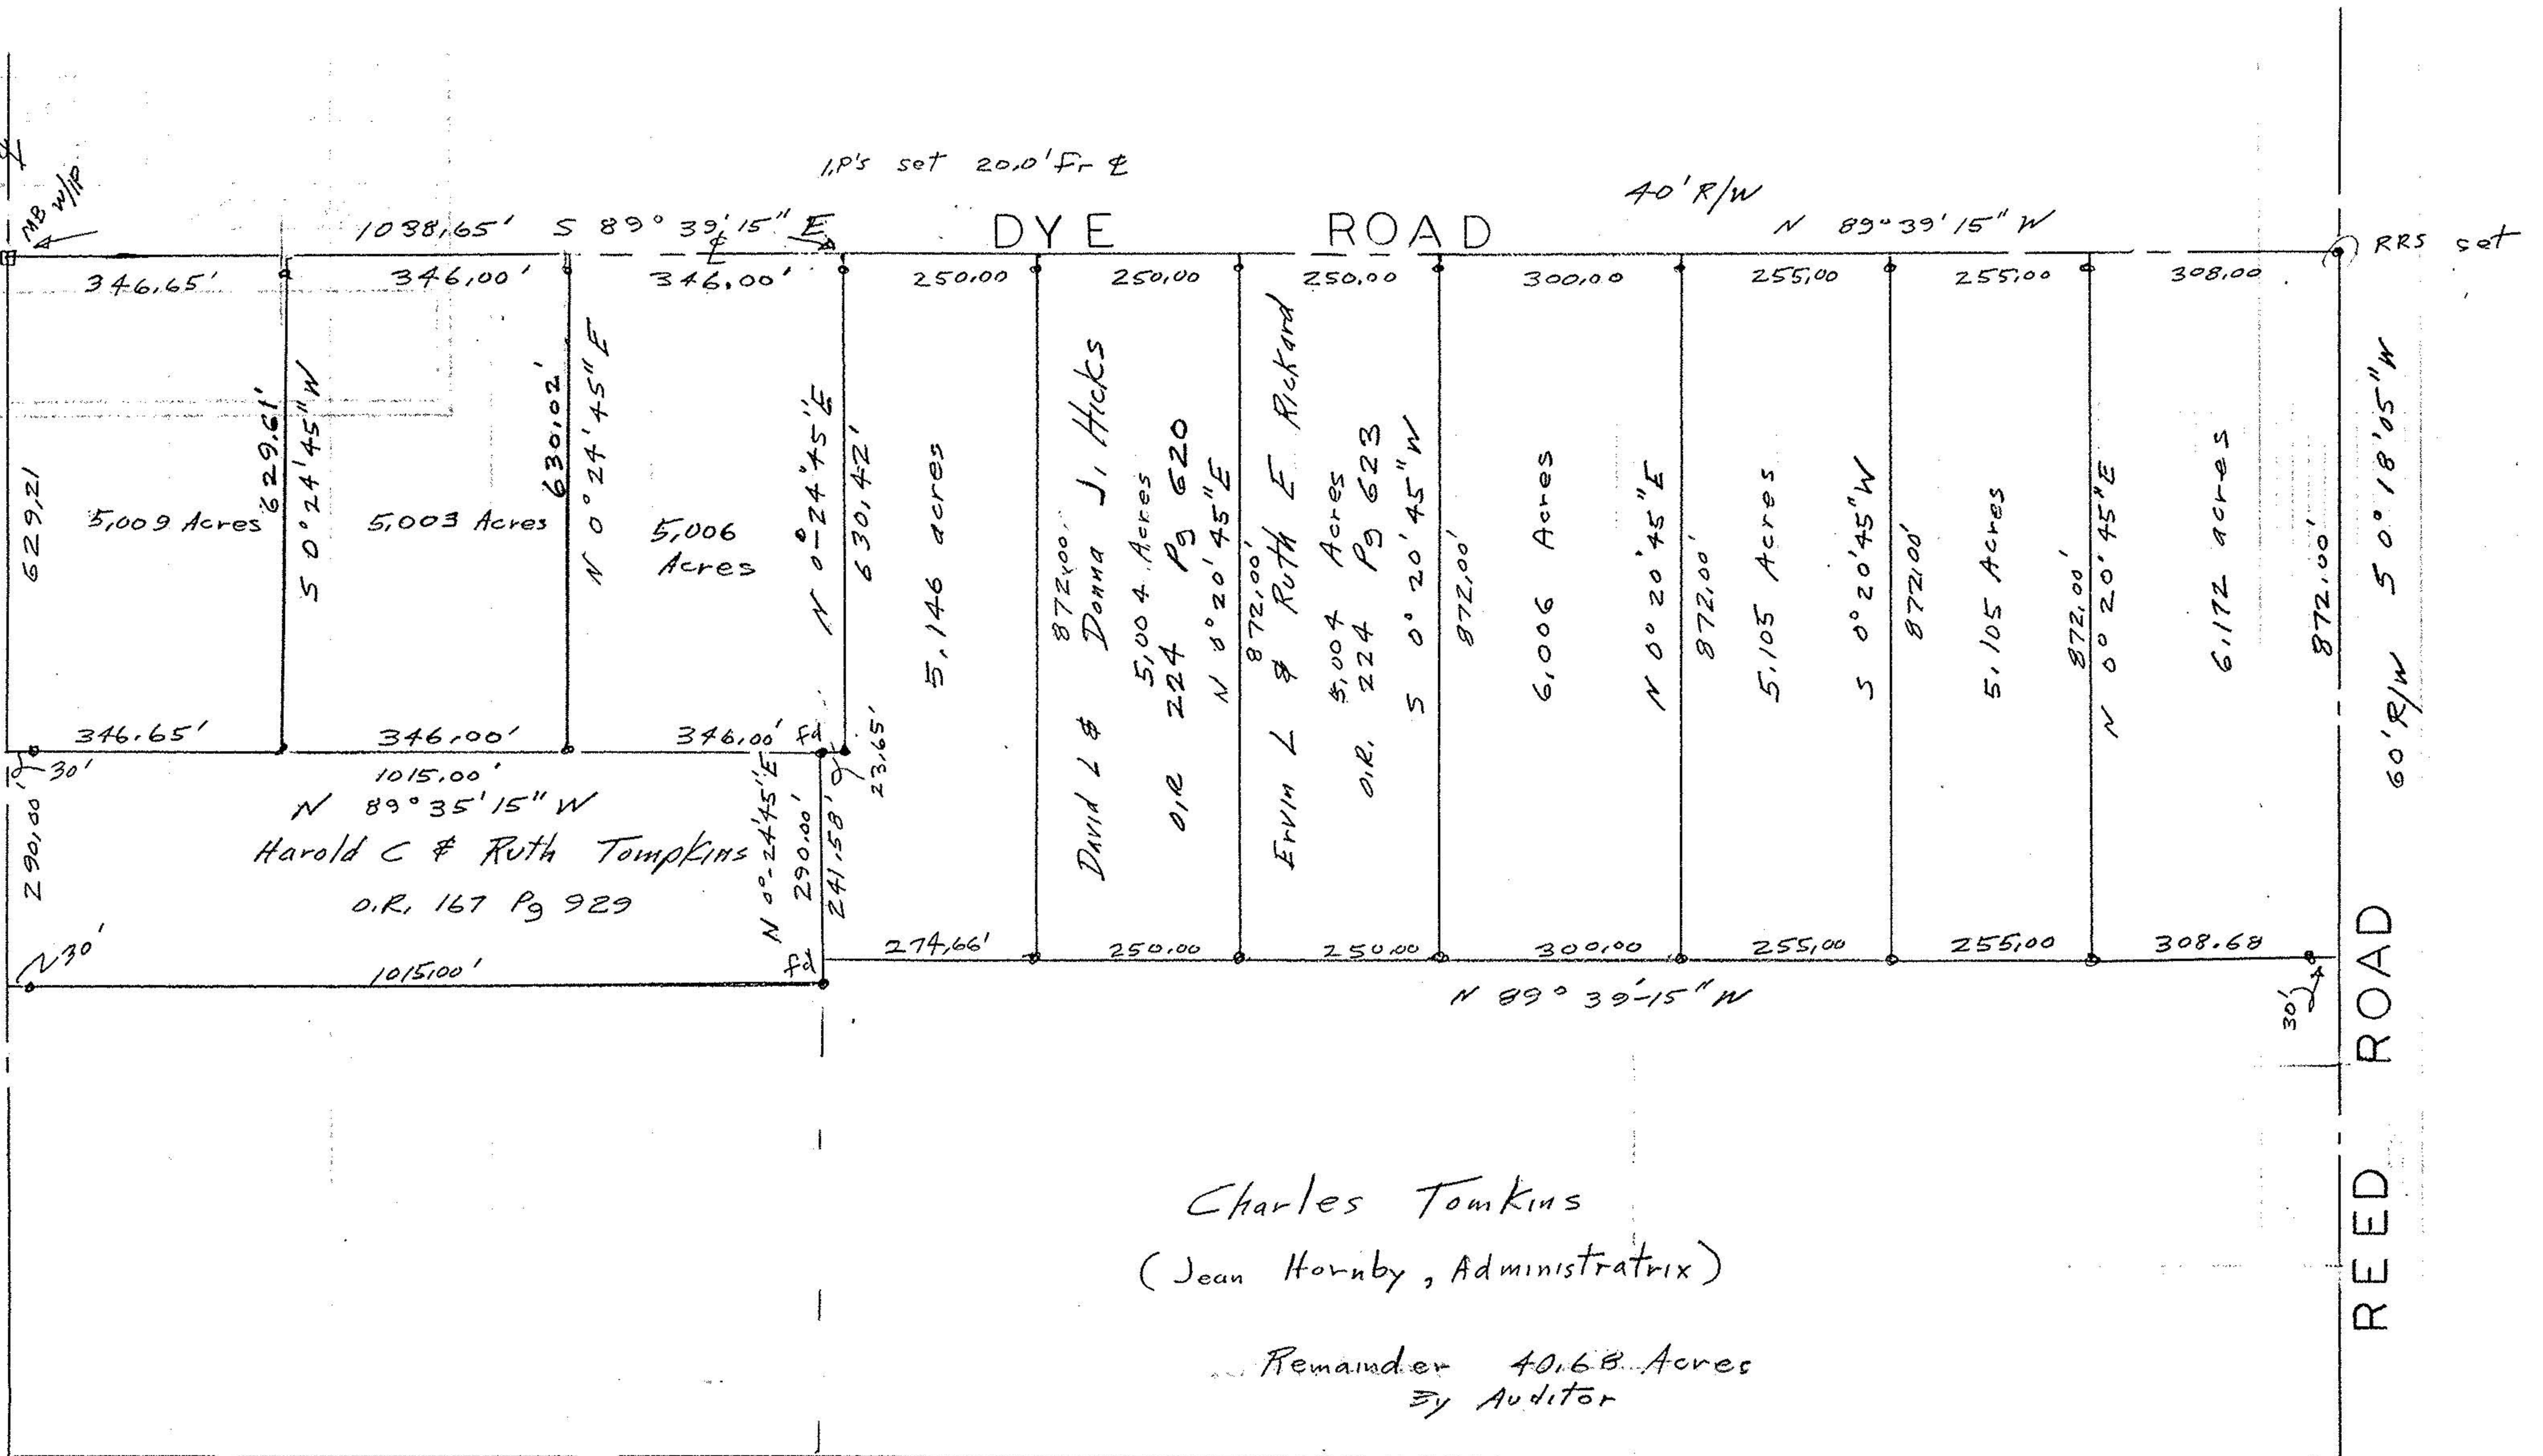 I.P's set 20.0' fr ℄
40' R/W
MB W/IP
1038.65' S 89° 39' 15" E
DYE ROAD
N 89° 39' 15" W
RRS set
℄
346.65'
346.00'
346.00'
250.00
250.00
250.00
300.00
255.00
255.00
308.00
629.21
5,009 Acres
629.61'
S 0° 24' 45" W
5,003 Acres
630.02'
N 0° 24' 45" E
5,006
Acres
N 0°-24' 45" E
630.42'
5.146 acres
872.00'
David L & Donna J. Hicks
5,004 Acres
O.R 224 Pg 620
N 0° 20' 45" E
872.00'
Ervin L & Ruth E Rickard
5,004 Acres
O.R. 224 Pg 623
S 0° 20' 45" W
872.00'
6.006 Acres
N 0° 20' 45" E
872.00'
5.105 Acres
S 0° 20' 45" W
872.00'
5.105 Acres
872.00'
N 0° 20' 45" E
6.172 acres
872.00'
60' R/W S 0° 18' 05" W
346.65'
346.00'
346.00'
fd
23.65'
30'
1015.00'
N 89° 35' 15" W
290.00'
Harold C & Ruth Tompkins
O.R. 167 Pg 929
N 0°-24' 45" E
290.00'
241.58'
30'
1015.00'
fd
274.66'
250.00
250.00
300.00
255.00
255.00
308.68
N 89° 39'-15" W
30'
REED ROAD
Charles Tomkins
(Jean Hornby, Administratrix)
Remainder 40.68 Acres
By Auditor